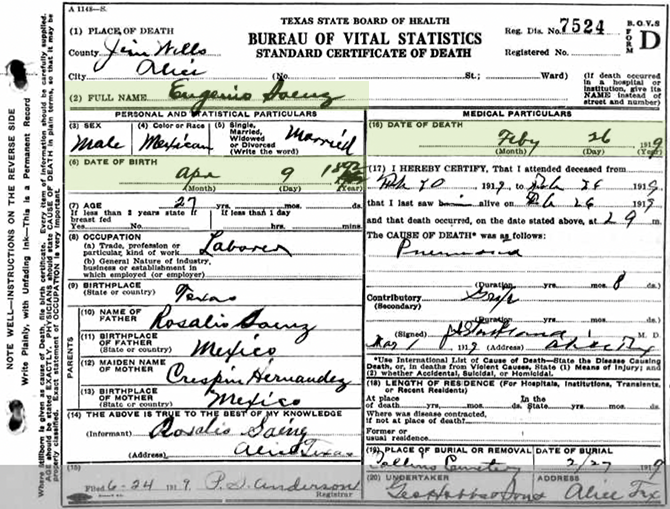 A 1148—S.
TEXAS STATE BOARD OF HEALTH
BUREAU OF VITAL STATISTICS
STANDARD CERTIFICATE OF DEATH
Reg. Dis. No. 7524
Registered No.
B.O.V.S
FORM D
(1) PLACE OF DEATH
County Jim Wells
City Alice (No. St.; Ward)
(If death occurred in a hospital or institution, give its NAME instead of street and number)
(2) FULL NAME Eugenio Saenz
PERSONAL AND STATISTICAL PARTICULARS
(3) SEX Male
(4) Color or Race Mexican
(5) Single, Married, Widowed or Divorced (Write the word) Married
(6) DATE OF BIRTH
Apr 9
(Month) (Day) (Year)
(7) AGE 27
If less than 2 years state if breast fed
If less than 1 day
Yes No hrs. mins.
(8) OCCUPATION
(a) Trade, profession or particular, kind of work Laborer
(b) General Nature of industry, business or establishment in which employed (or employer)
(9) BIRTHPLACE
(State or country) Texas
PARENTS
(10) NAME OF FATHER Rosalis Saenz
(11) BIRTHPLACE OF FATHER (State or country) Mexico
(12) MAIDEN NAME OF MOTHER Crespin Hernandez
(13) BIRTHPLACE OF MOTHER (State or country) Mexico
(14) THE ABOVE IS TRUE TO THE BEST OF MY KNOWLEDGE
(Informant) Rosalis Saenz
(Address) Alice Texas
(15)
Filed 6-24 1919 P.S. Anderson
Registrar
MEDICAL PARTICULARS
(16) DATE OF DEATH
Feby 26 1919
(Month) (Day) (Year)
(17) I HEREBY CERTIFY, That I attended deceased from
1919, to Feb 26 1919
that I last saw alive on Feb 26 1919
and that death occurred, on the date stated above, at m.
The CAUSE OF DEATH* was as follows:
(Duration) yrs. mos. 8 ds.
Contributory
(Secondary)
(Duration) yrs. mos. ds.
(Signed) M. D.
Mar 1 1919 (Address)
*Use International List of Cause of Death—State the Disease Causing Death, or, in deaths from Violent Causes, State (1) Means of Injury; and (2) whether Accidental, Suicidal, or Homicidal.
(18) LENGTH OF RESIDENCE (For Hospitals, Institutions, Transients, or Recent Residents)
At place of death yrs. mos. ds. In the State yrs. mos. ds.
Where was disease contracted, if not at place of death?
Former or usual residence.
(19) PLACE OF BURIAL OR REMOVAL DATE OF BURIAL
Collins Cemetery 2/27 1919
(20) UNDERTAKER ADDRESS
Alice Tex
NOTE WELL—INSTRUCTIONS ON THE REVERSE SIDE
Write Plainly, with Unfading Ink—This is a Permanent Record